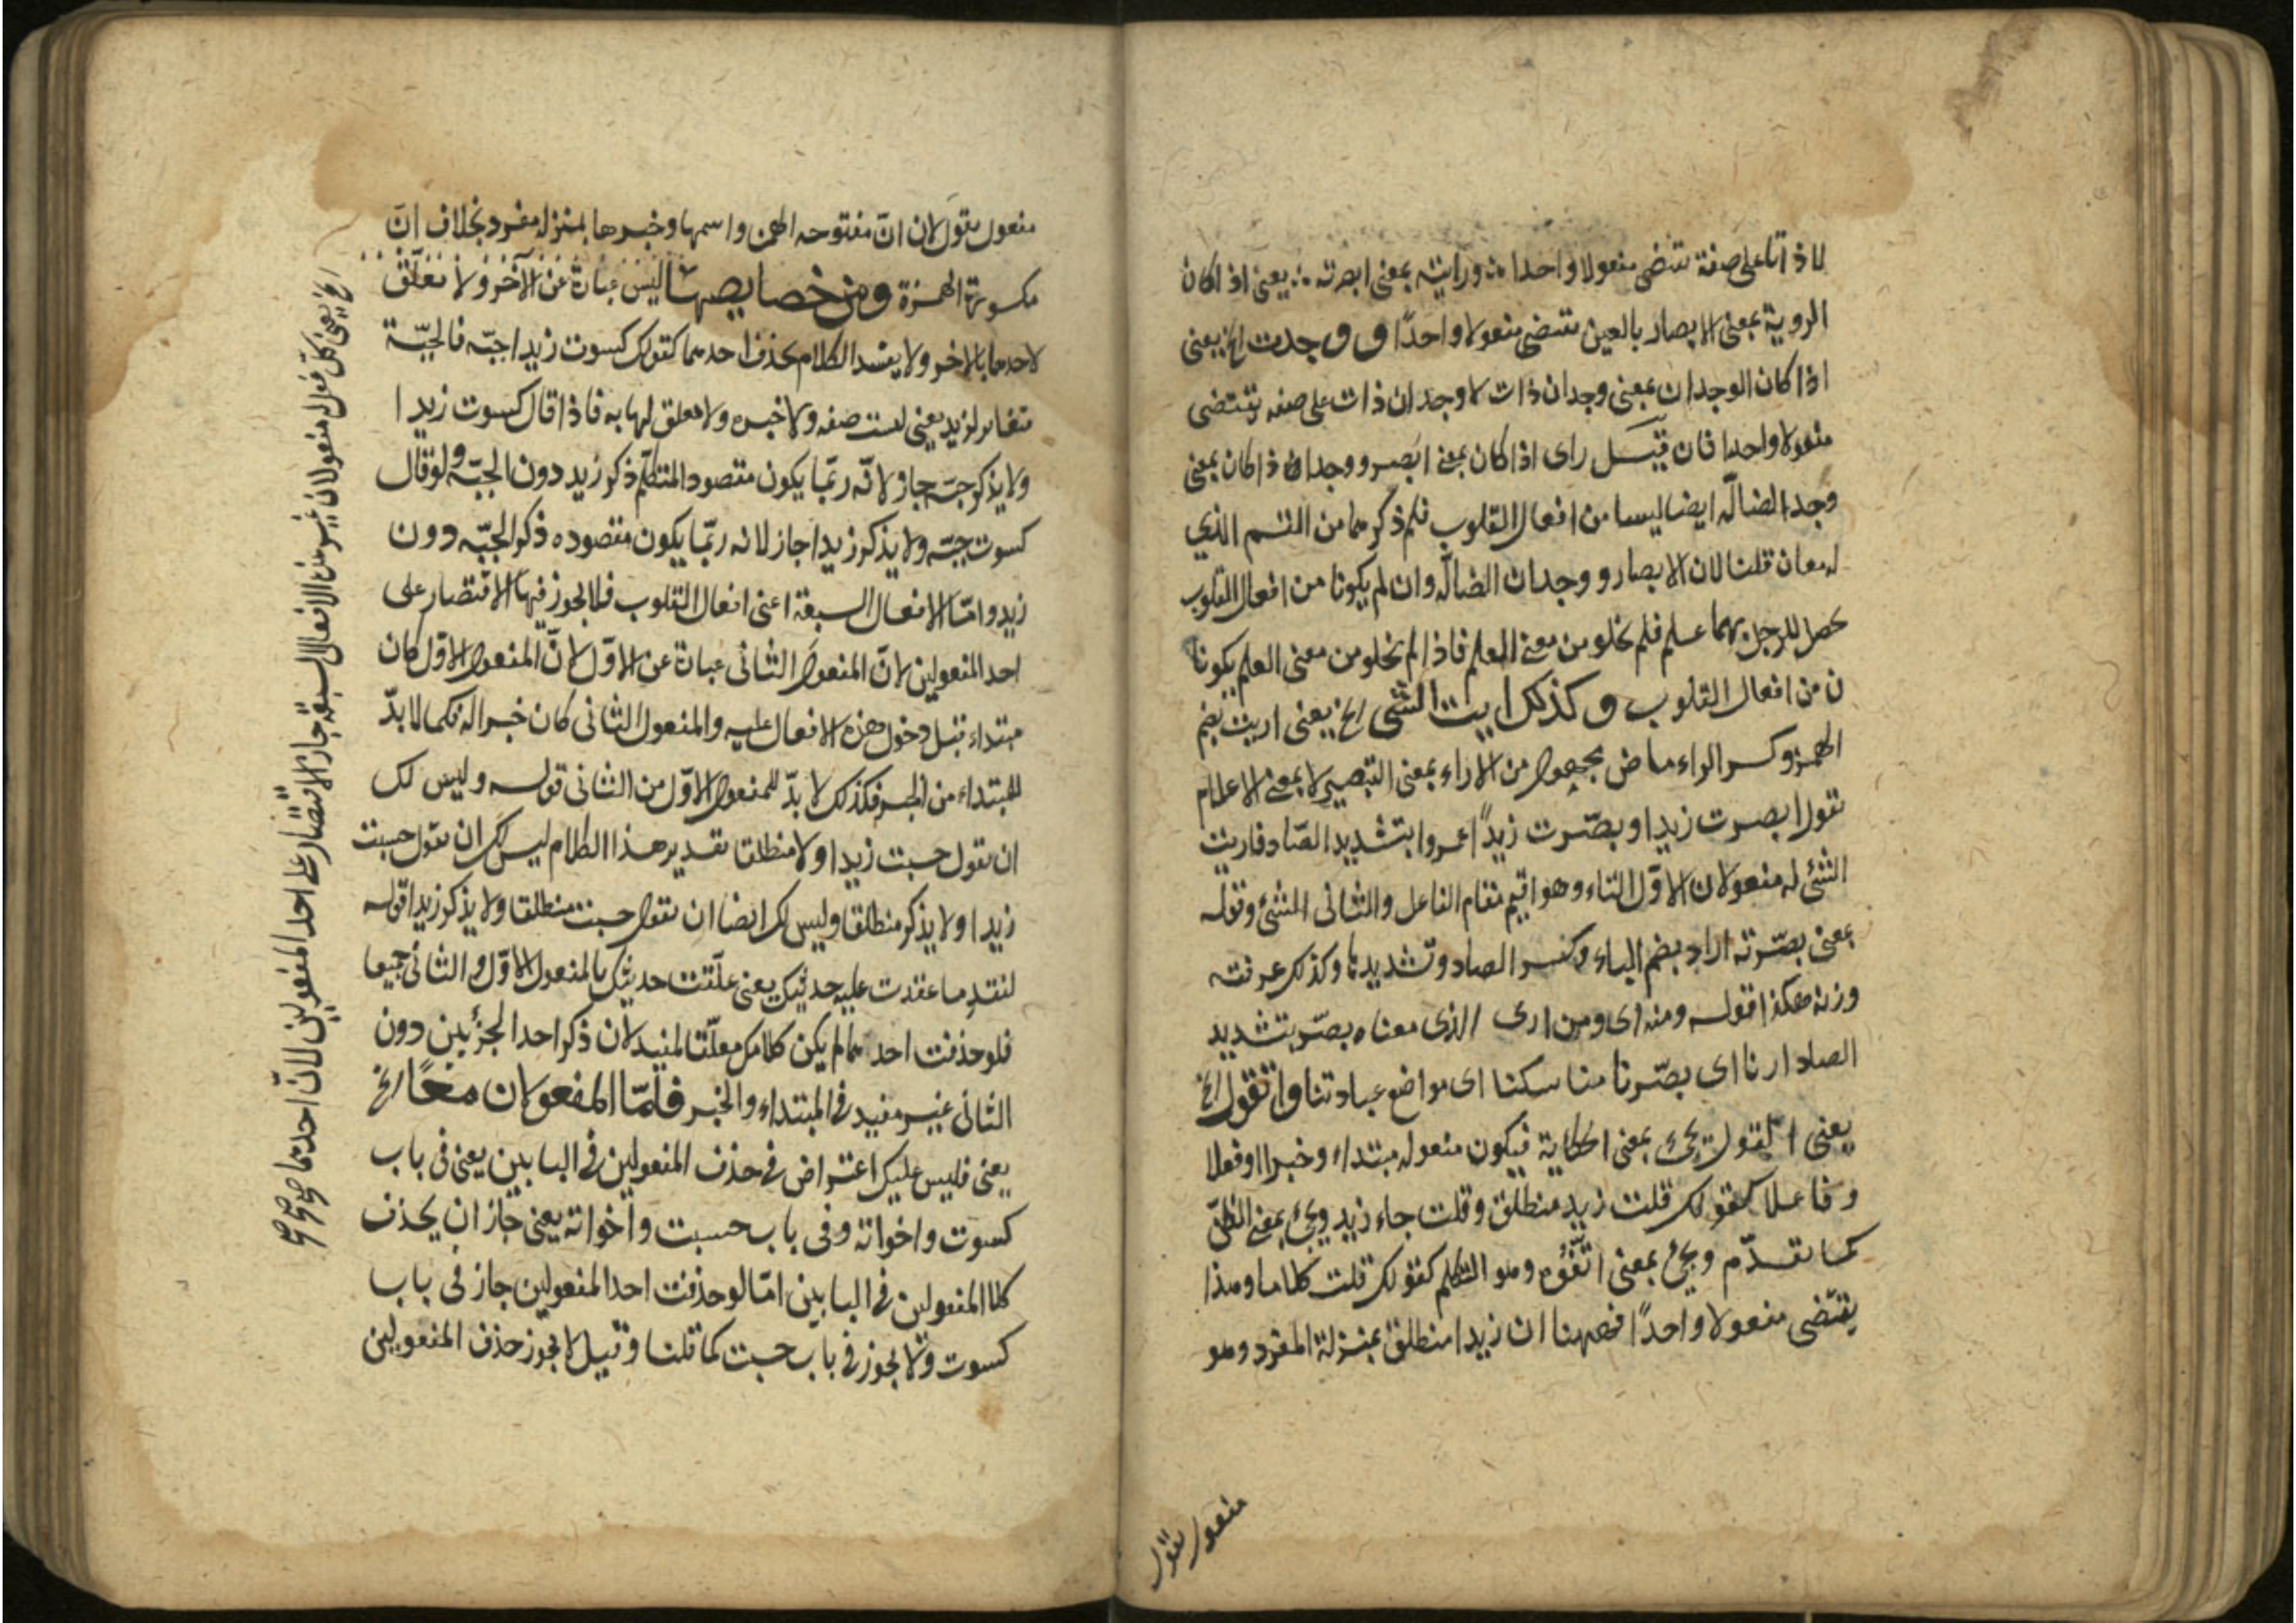 لا ذاتا على صفة تقتضى مفعولا واحدا ورايته بمعنى ابصرته يعنى اذا كان
الروية بمعنى الابصار بالعين تقتضى مفعولا واحدًا ووجدت الخ يعنى
اذا كان الوجدان بمعنى وجدان ذات لا وجدان ذات على صفه يقتضى
مفعولا واحدا فان قيل راى اذا كان بمعنى ابصر ووجد اذا كان بمعنى
وجد الضالّه ايضا ليسا من افعال القلوب فلم ذكرهما من القسم الذي
له معان قلنا لان الابصار ووجدان الضالّه وان لم يكونا من افعال القلوب
يحصل للرجل بهما علم فلم يخلو من معنى العلم فاذا لم يخلو من معنى العلم يكونا
ن من افعال القلوب وكذلك اريت الشئ الخ يعنى اريت بضم
الهمزه وكسر الراء ماض مجهول من الاراء بمعنى التبصير لا بمعنى الاعلام
تقول ابصرت زيدا وبصّرت زيدًا عمروا بتشديد الصّاد فاريت
الشئ له مفعولان الاوّل التاء وهو اقيم مقام الفاعل والثانى الشئ وقوله
بمعنى بصّرته اراد بضم الباء وكسر الصاد وتشديدها وكذلك عرفته
وزنه هكذا قوله ومنه اى ومن ارى الذى معناه بصّر بتشديد
الصاد ارنا اى بصّرنا مناسكنا اى مواضع عبادتنا واتقول الخ
يعنى القول يجئ بمعنى الحكاية فيكون مفعوله مبتداء وخبرا او فعلا
وفاعلا كقولك قلت زيد منطلق وقلت جاء زيد ويجئ بمعنى الظنّ
كما تقدّم ويجئ بمعنى اتّفوّه وهو التكلم كقولك قلت كلاما وهذا
يقتضى مفعولا واحدًا فههنا ان زيدا منطلق بمنزلة المفرد وهو
مفعول تقول
مفعول تقول لان انّ مفتوحه الهمزه واسمها وخبرها بمنزله مفرد بخلاف انّ
مكسورة الهمزة ومن خصايصها ليس عبارة عن الآخر ولا تعلّق
لاحدهما بالاخر ولا يفسد الكلام بحذف احدهما كقولك كسوت زيدا جبّه فالجبّة
متغاير لزيد يعنى ليست صفه ولا خبره ولا تعلق لها به فاذا قال كسوت زيدا
ولا يذكر جبّه جاز لانّه ربّما يكون مقصود المتكلّم ذكر زيد دون الجبّه ولو قال
كسوت جبّه ولا يذكر زيدا جاز لانه ربّما يكون مقصوده ذكر الجبّه دون
زيد وامّا الافعال السبعة اعنى افعال القلوب فلا يجوز فيها الاقتصار على
احد المفعولين لانّ المفعول الثانى عبارة عن الاوّل لانّ المفعول الاوّل كان
مبتداء قبل دخول هذه الافعال عليه والمفعول الثانى كان خبرا له فكما لا بدّ
للمبتداء من الخبر فكذلك لا بدّ للمفعول الاوّل من الثانى قوله وليس لك
ان تقول حسبت زيدا ولا منطلقا تقدير هذا الكلام ليس لك ان تقول حسبت
زيدا ولا يذكر منطلقا وليس لك ايضا ان تقول حسبت منطلقا ولا يذكر زيدا قوله
لفقد ما عقدت عليه حديثك يعنى علّقت حديثك بالمفعول الاوّل والثانى جميعا
فلو حذفت احدهما لم يكن كلامك معلّقا لمفيد لان ذكر احد الجزئين دون
الثانى غير مفيد فى المبتداء والخبر فامّا المفعولان معًا الخ
يعنى فليس عليك اعتراض فى حذف المفعولين فى البابين يعنى فى باب
كسوت واخواته وفى باب حسبت واخواته يعنى جاز ان يحذف
كلا المفعولين فى البابين امّا لو حذفت احد المفعولين جاز فى باب
كسوت ولا يجوز فى باب حسبت كما قلنا وقيل لا يجوز حذف المفعولين
الخ يعنى كلّ فعل له مفعولان غير من الافعال السبعة جاز الاقتصار على احد المفعولين لانّ احدهما صح صح صح